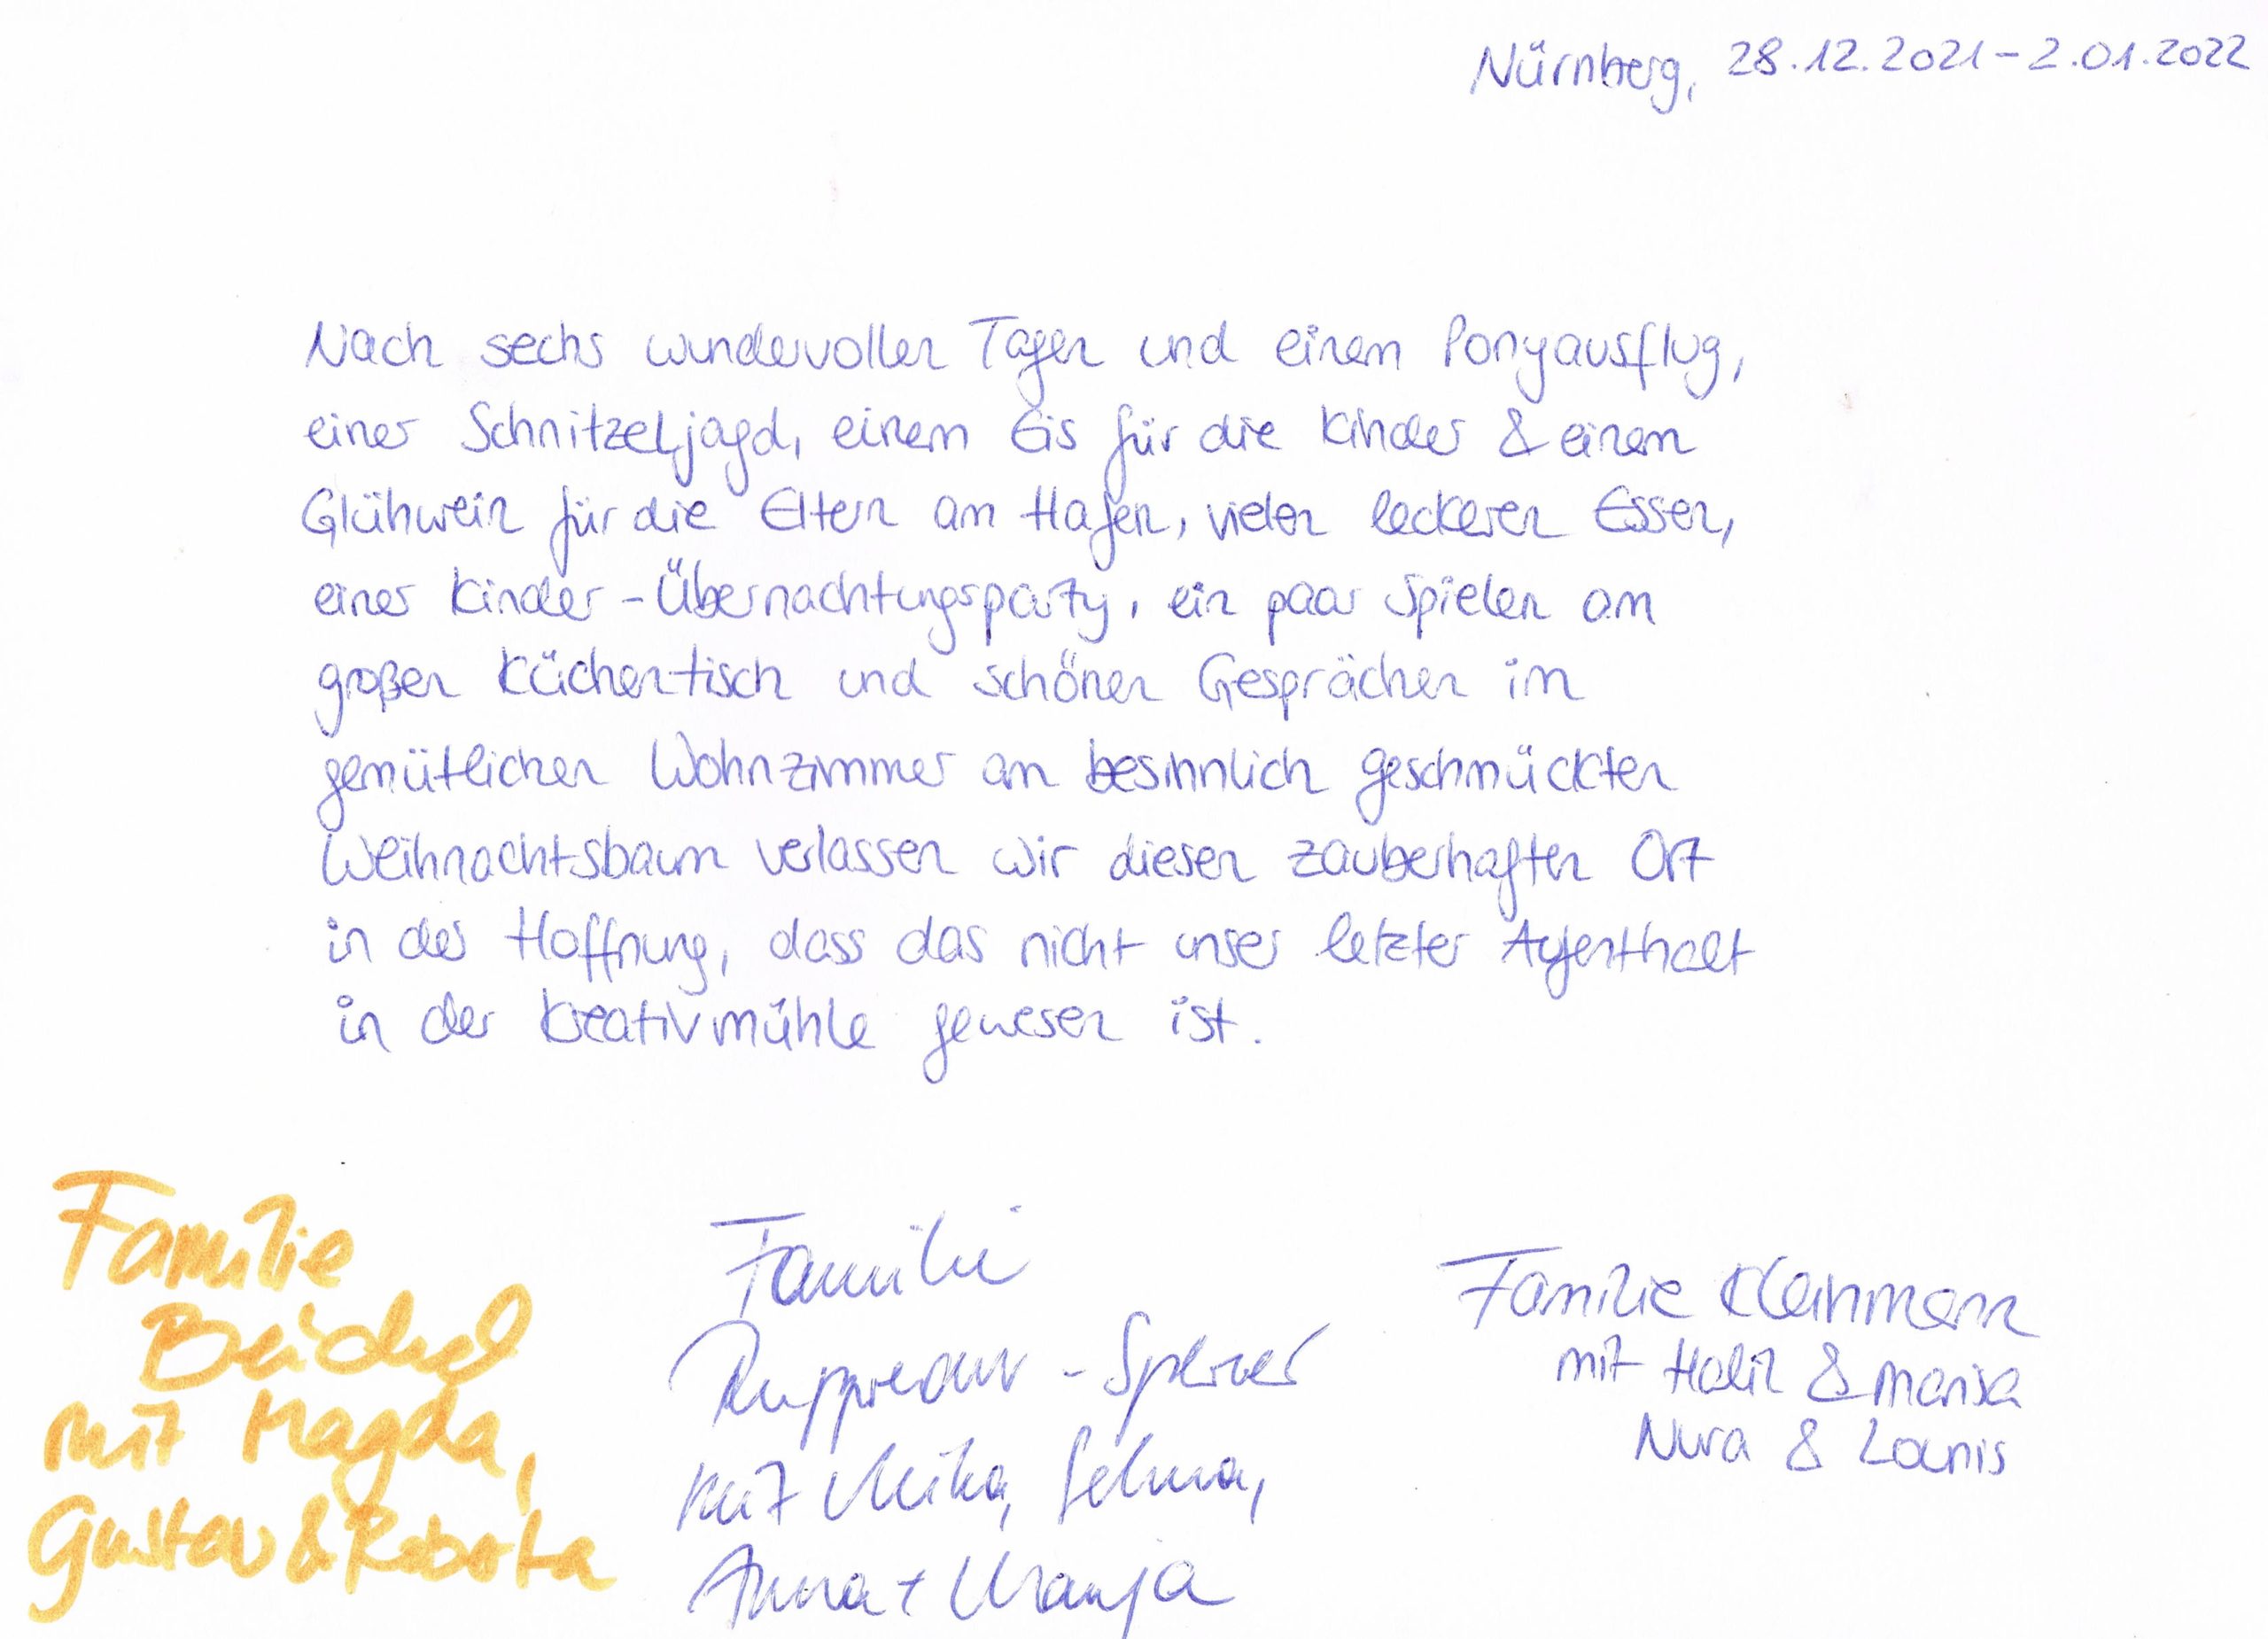 Nürnberg, 28.12.2021-2.01.2022
Nach sechs wundervollen Tagen und einem Ponyausflug,
einer Schnitzeljagd, einem Eis für die Kinder & einem
Glühwein für die Eltern am Hafen, vielen leckeren Essen,
einer Kinder-Übernachtungsparty, ein paar Spielen am
großen Küchentisch und schönen Gesprächen im
gemütlichen Wohnzimmer am besinnlich geschmückten
Weihnachtsbaum verlassen wir diesen zauberhaften Ort
in der Hoffnung, dass das nicht unser letzter Aufenthalt
in der Kreativmühle gewesen ist.
Familie
mit Magda,
Gustav &
Familie
mit Mika, Selma,
Anna +
Familie
mit Halil & Marisa
Nura & Lounis